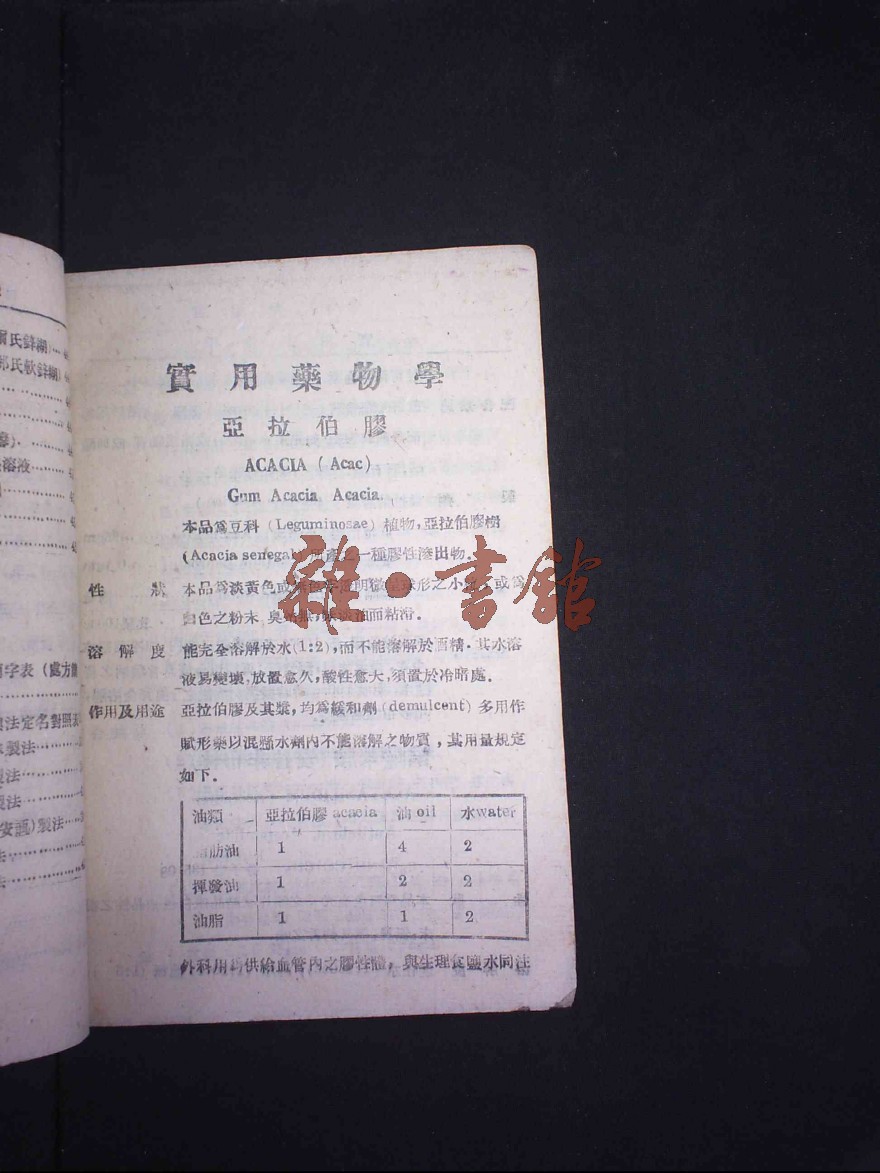 爾氏鋅糊)
郎氏軟鋅糊)
溶液
字表(處方
法定名對照表
製法
製法
製法
製法
實用藥物學
亞拉伯膠
ACACIA (Acac)
Gum Acacia Acacia.
本品爲豆科 (Leguminosae) 植物,亞拉伯膠樹
(Acacia senegal) 所產之一種膠性滲出物.
性狀 本品爲淡黃色或 透明 球形之小 或爲
白色之粉末 臭 而粘滑.
溶解度 能完全溶解於水(1:2),而不能溶解於酒精.其水溶
液易變壞,放置愈久,酸性愈大,須置於冷暗處.
作用及用途 亞拉伯膠及其漿,均爲緩和劑 (demulcent) 多用作
賦形藥以混懸水劑內不能溶解之物質,其用量規定
如下.
油類 亞拉伯膠 acacia 油 oil 水water
脂肪油 1 4 2
揮發油 1 2 2
油脂 1 1 2
外科用爲供給血管內之膠性體,與生理食鹽水同注
雜·書館